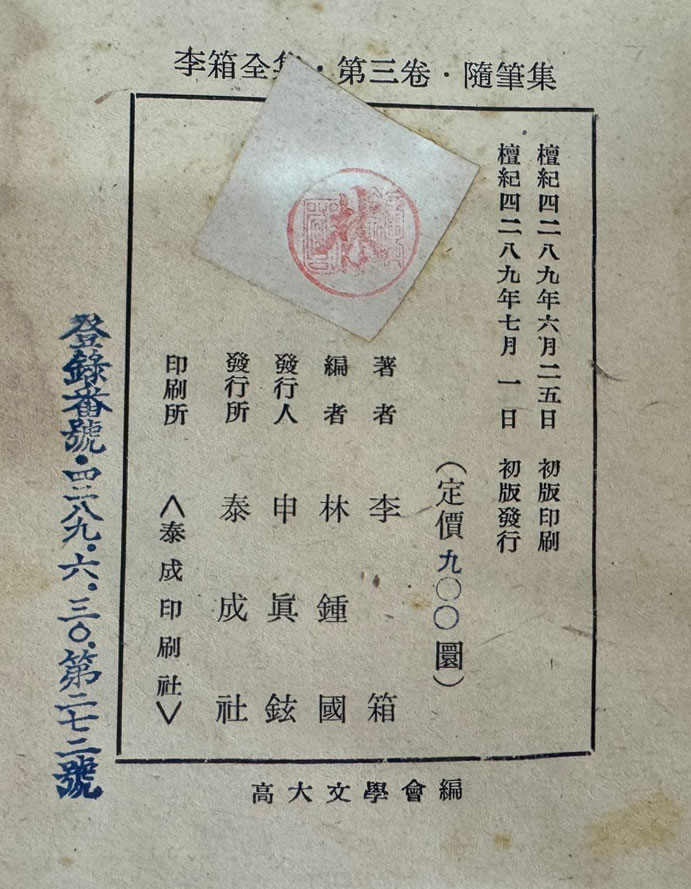 李箱全集・第三卷・隨筆集
檀紀四二八九年六月二五日 初版印刷
檀紀四二八九年七月 一日 初版發行
(定價九〇〇圜)
著者 李 箱
編者 林鍾國
發行人 申眞鉉
發行所 泰成社
印刷所 <泰成印刷社>
林
登錄番號・四二八九・六・三〇・第二七二號
高大文學會編